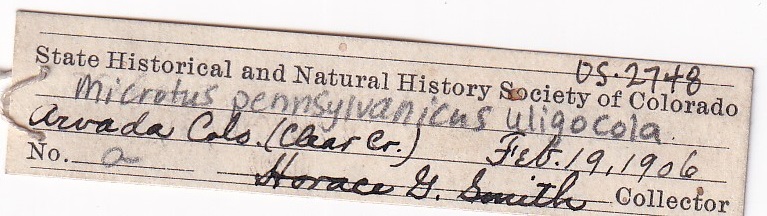 OS-2748
State Historical and Natural History Society of Colorado
Microtus pennsylvanicus uligocola
Arvada Colo. (Clear Cr.) Feb. 19, 1906
No. a
Horace G. Smith Collector